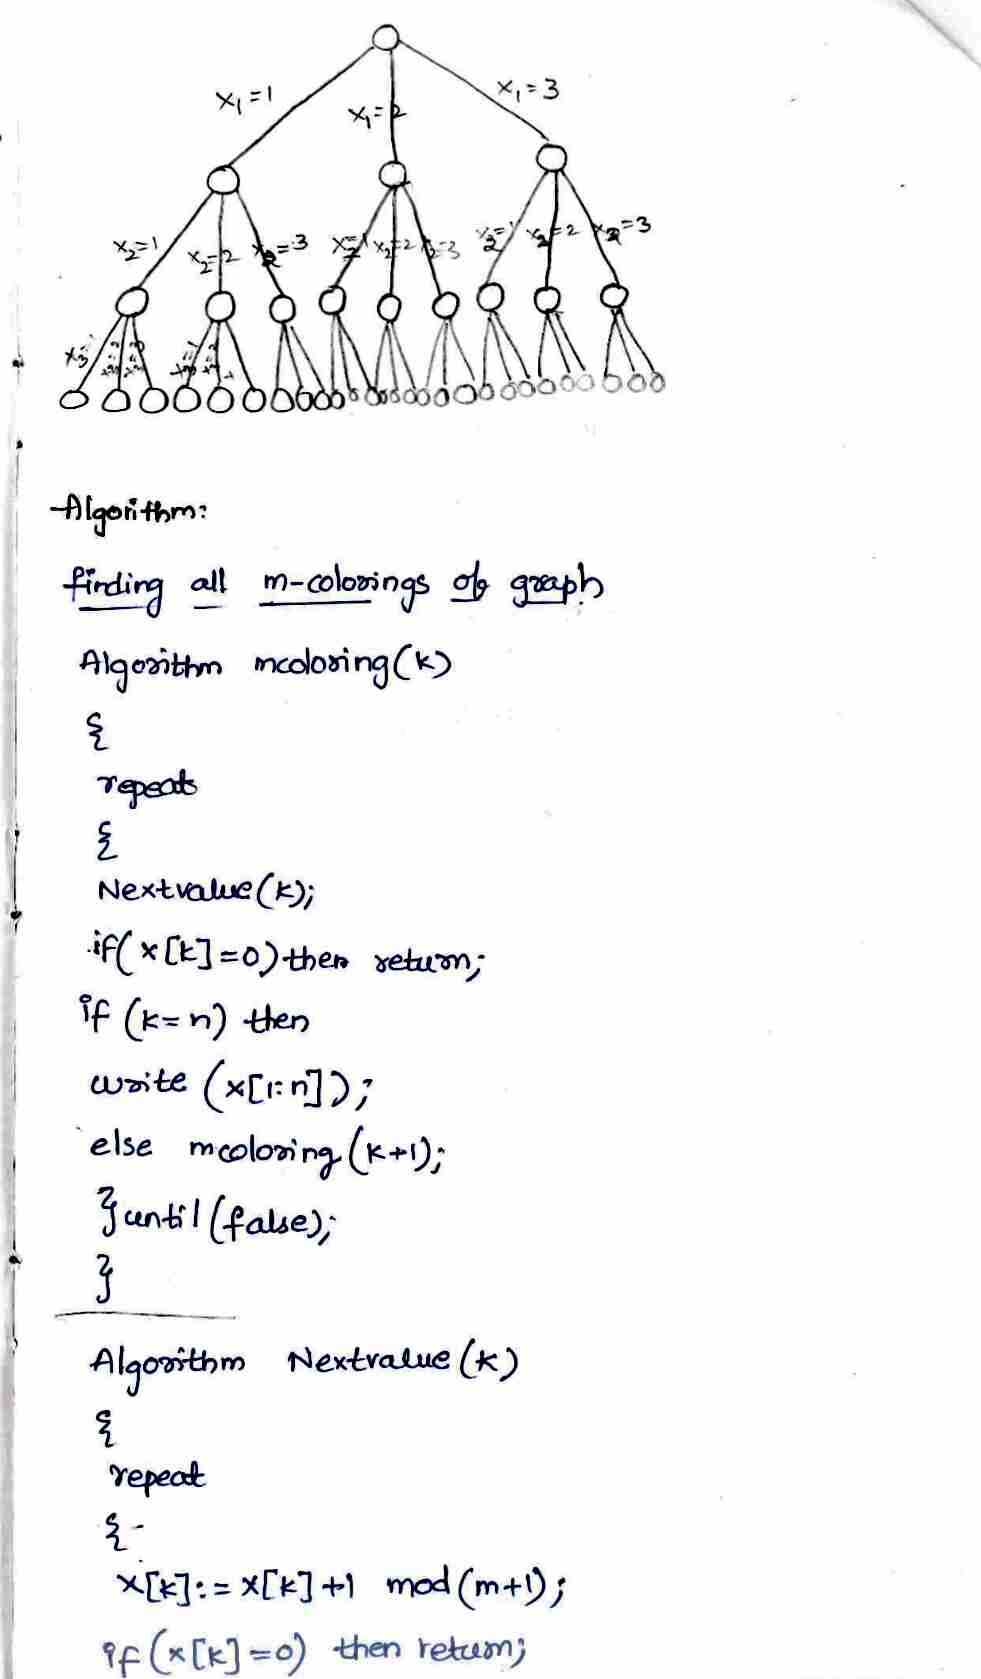 x₁=1
x₁=2
x₁=3
x₂=1
x₂=2
x₂=3
x₂=1
x₂=2
x₂=3
x₂=1
x₂=2
x₂=3
x3
Algorithm:
finding all m-colorings of graph
Algorithm mcoloring(k)
{
repeat
{
Nextvalue(k);
if(x[k]=0) then return;
if (k=n) then
write (x[1:n]);
else mcoloring(k+1);
}until(false);
}
Algorithm Nextvalue(k)
{
repeat
{
x[k]:=x[k]+1 mod(m+1);
if(x[k]=0) then return;